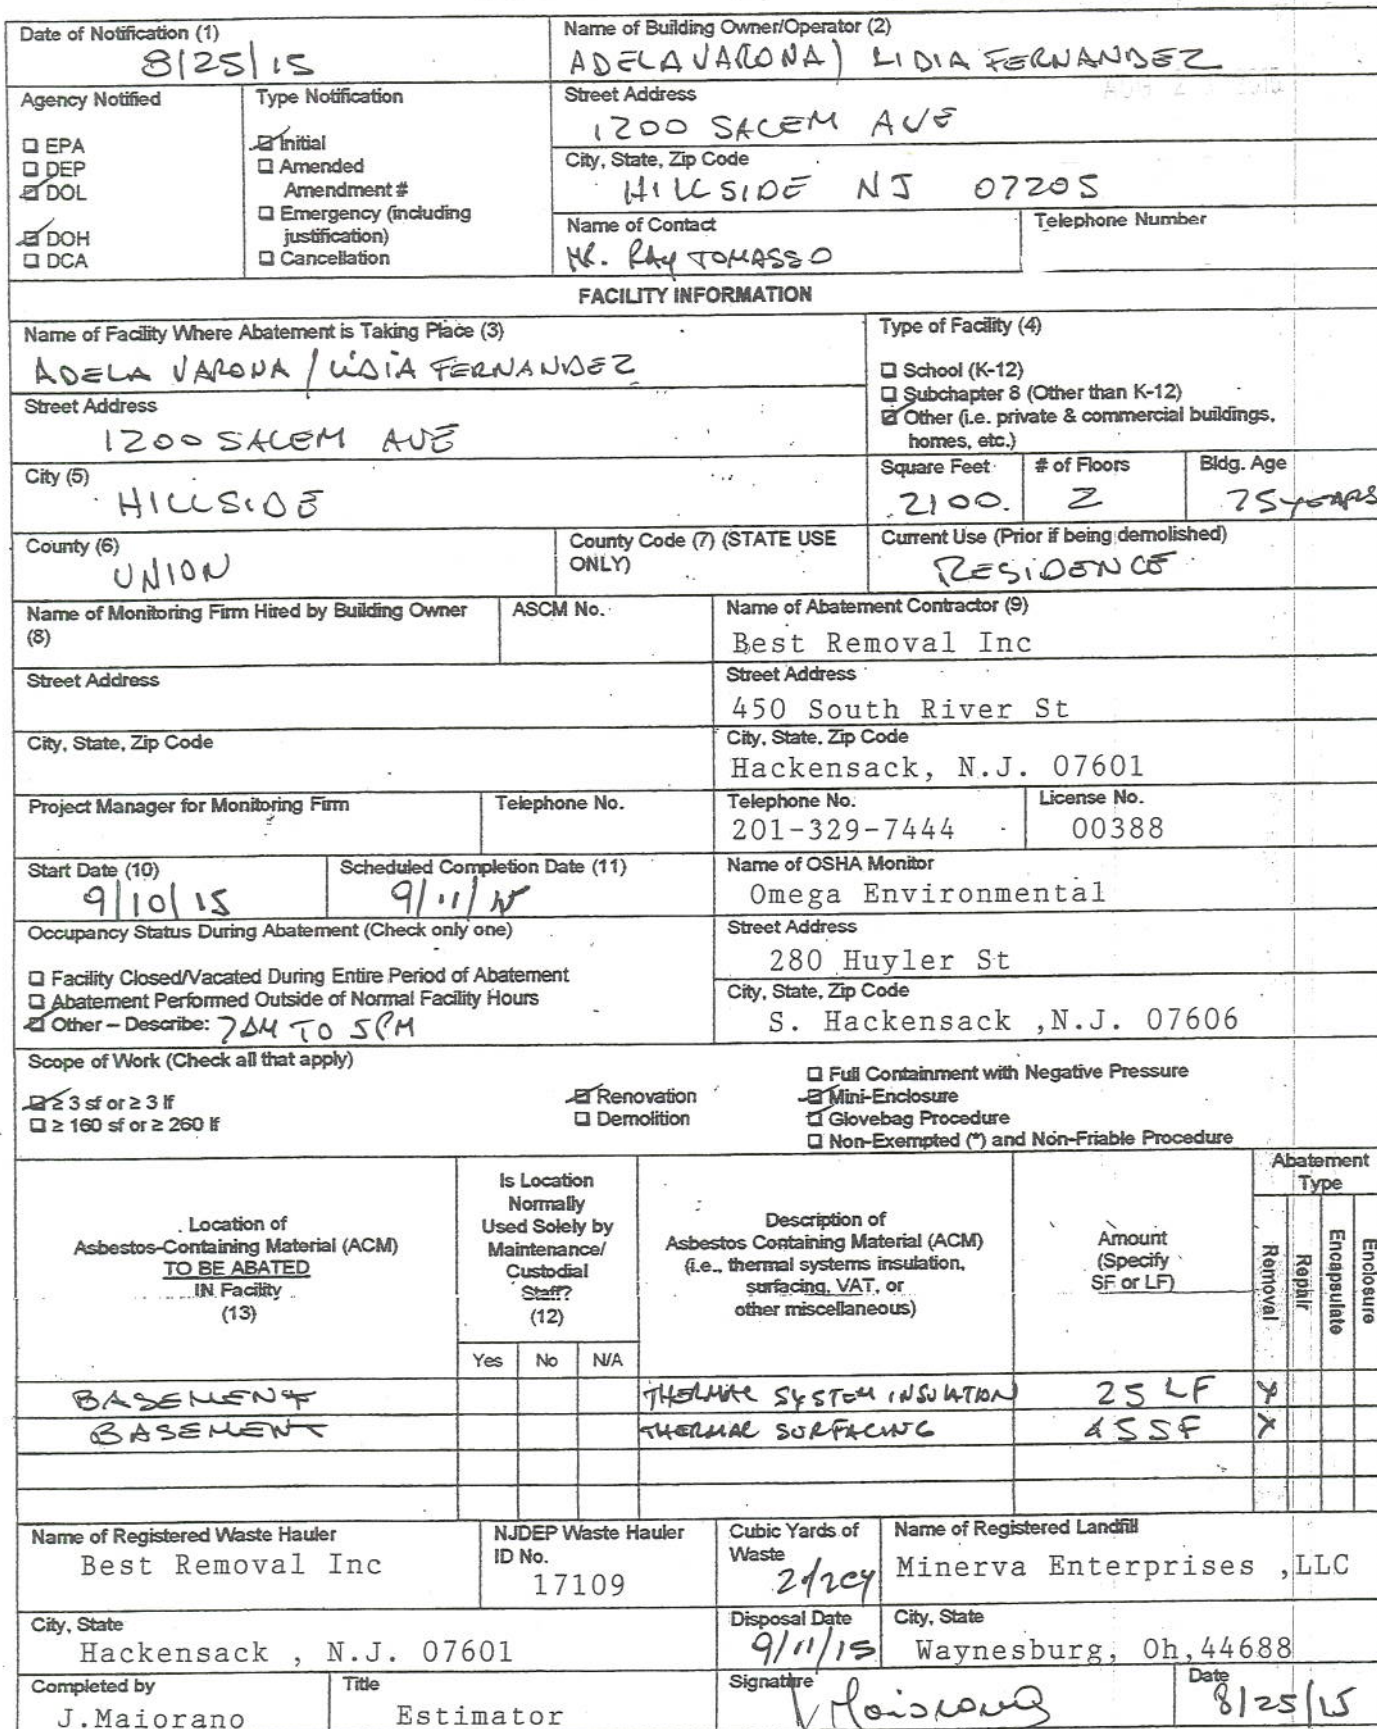 Date of Notification (1)
8/25/15
Name of Building Owner/Operator (2)
ADELA VARONA) LIDIA FERNANDEZ
Agency Notified
☐ EPA
☐ DEP
☑ DOL
☑ DOH
☐ DCA
Type Notification
☑ Initial
☐ Amended
Amendment #
☐ Emergency (including
justification)
☐ Cancellation
Street Address
1200 SALEM AVE
City, State, Zip Code
HILLSIDE NJ 07205
Name of Contact
MR. RAY TOMASSO
Telephone Number
FACILITY INFORMATION
Name of Facility Where Abatement is Taking Place (3)
ADELA VARONA / LIDIA FERNANDEZ
Type of Facility (4)
☐ School (K-12)
☐ Subchapter 8 (Other than K-12)
☑ Other (i.e. private & commercial buildings,
homes, etc.)
Street Address
1200 SALEM AVE
City (5)
HILLSIDE
Square Feet
2100.
# of Floors
2
Bldg. Age
75 YEARS
County (6)
UNION
County Code (7) (STATE USE
ONLY)
Current Use (Prior if being demolished)
RESIDENCE
Name of Monitoring Firm Hired by Building Owner
(8)
ASCM No.
Name of Abatement Contractor (9)
Best Removal Inc
Street Address
Street Address
450 South River St
City, State, Zip Code
City, State. Zip Code
Hackensack, N.J. 07601
Project Manager for Monitoring Firm
Telephone No.
Telephone No.
201-329-7444
License No.
00388
Start Date (10)
9/10/15
Scheduled Completion Date (11)
9/11/15
Name of OSHA Monitor
Omega Environmental
Occupancy Status During Abatement (Check only one)
☐ Facility Closed/Vacated During Entire Period of Abatement
☐ Abatement Performed Outside of Normal Facility Hours
☑ Other – Describe: 7AM TO 5PM
Street Address
280 Huyler St
City, State, Zip Code
S. Hackensack ,N.J. 07606
Scope of Work (Check all that apply)
☑ ≥ 3 sf or ≥ 3 lf
☐ ≥ 160 sf or ≥ 260 lf
☑ Renovation
☐ Demolition
☐ Full Containment with Negative Pressure
☑ Mini-Enclosure
☑ Glovebag Procedure
☐ Non-Exempted (*) and Non-Friable Procedure
Location of
Asbestos-Containing Material (ACM)
TO BE ABATED
IN Facility
(13)
Is Location
Normally
Used Solely by
Maintenance/
Custodial
Staff?
(12)
Yes No N/A
Description of
Asbestos Containing Material (ACM)
(i.e., thermal systems insulation,
surfacing, VAT, or
other miscellaneous)
Amount
(Specify
SF or LF)
Abatement
Type
Removal
Repair
Encapsulate
Enclosure
BASEMENT THERMAL SYSTEM INSULATION 25 LF X
BASEMENT THERMAL SURFACING 45 SF X
Name of Registered Waste Hauler
Best Removal Inc
NJDEP Waste Hauler
ID No.
17109
Cubic Yards of
Waste
Name of Registered Landfill
Minerva Enterprises ,LLC
City, State
Hackensack , N.J. 07601
Disposal Date
9/11/15
City, State
Waynesburg, Oh,44688
Completed by
J.Maiorano
Title
Estimator
Signature
Date
8/25/15